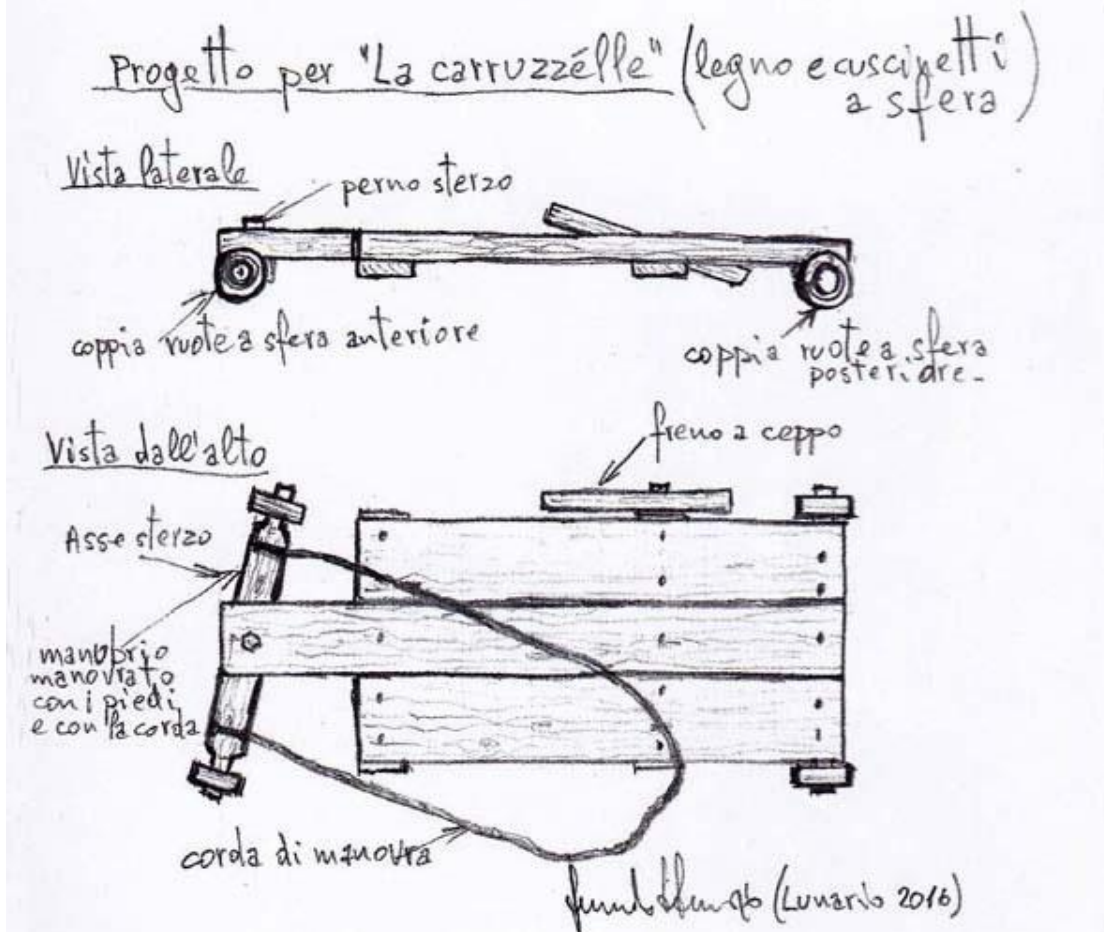 Progetto per "La carruzzélle" (legno e cuscinetti
a sfera)
Vista laterale
perno sterzo
coppia ruote a sfera anteriore
coppia ruote a sfera
posteriore-
Vista dall'alto
freno a ceppo
Asse sterzo
manubrio
manovrato
con i piedi
e con la corda
corda di manovra
(Lunario 2016)